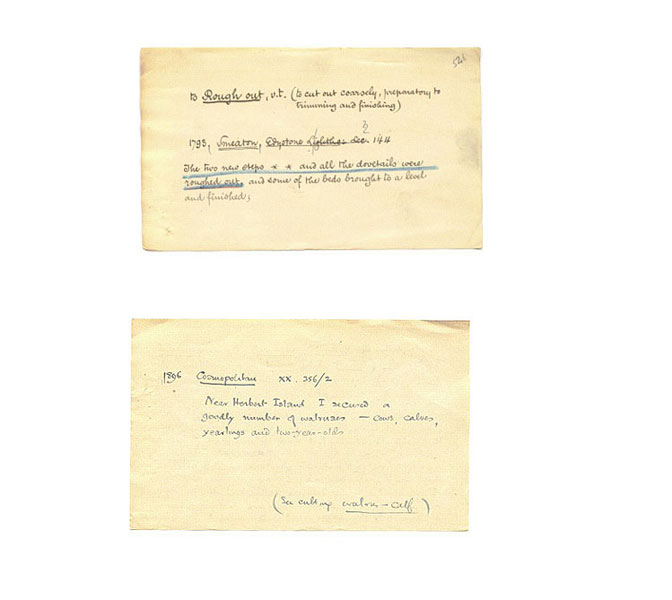 521
to Rough out, v.t. (to cut out coarsely, preparatory to
trimming and finishing)
1793, Smeaton, Edystone Lightho: Sec. 144
The two new steps * * and all the dovetails were
roughed out, and some of the beds brought to a level
and finished;
1896 Cosmopolitan XX. 356/2
Near Herbert Island I secured a
goodly number of walruses – cows, calves,
yearlings and two-year-olds
(See cutting walrus-calf)